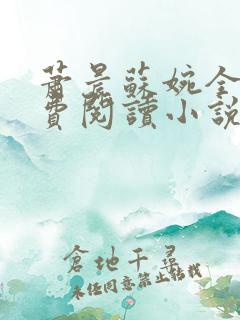 蕭晨蘇婉全
費閱讀小說
倉地千尋
未经同意禁止转载